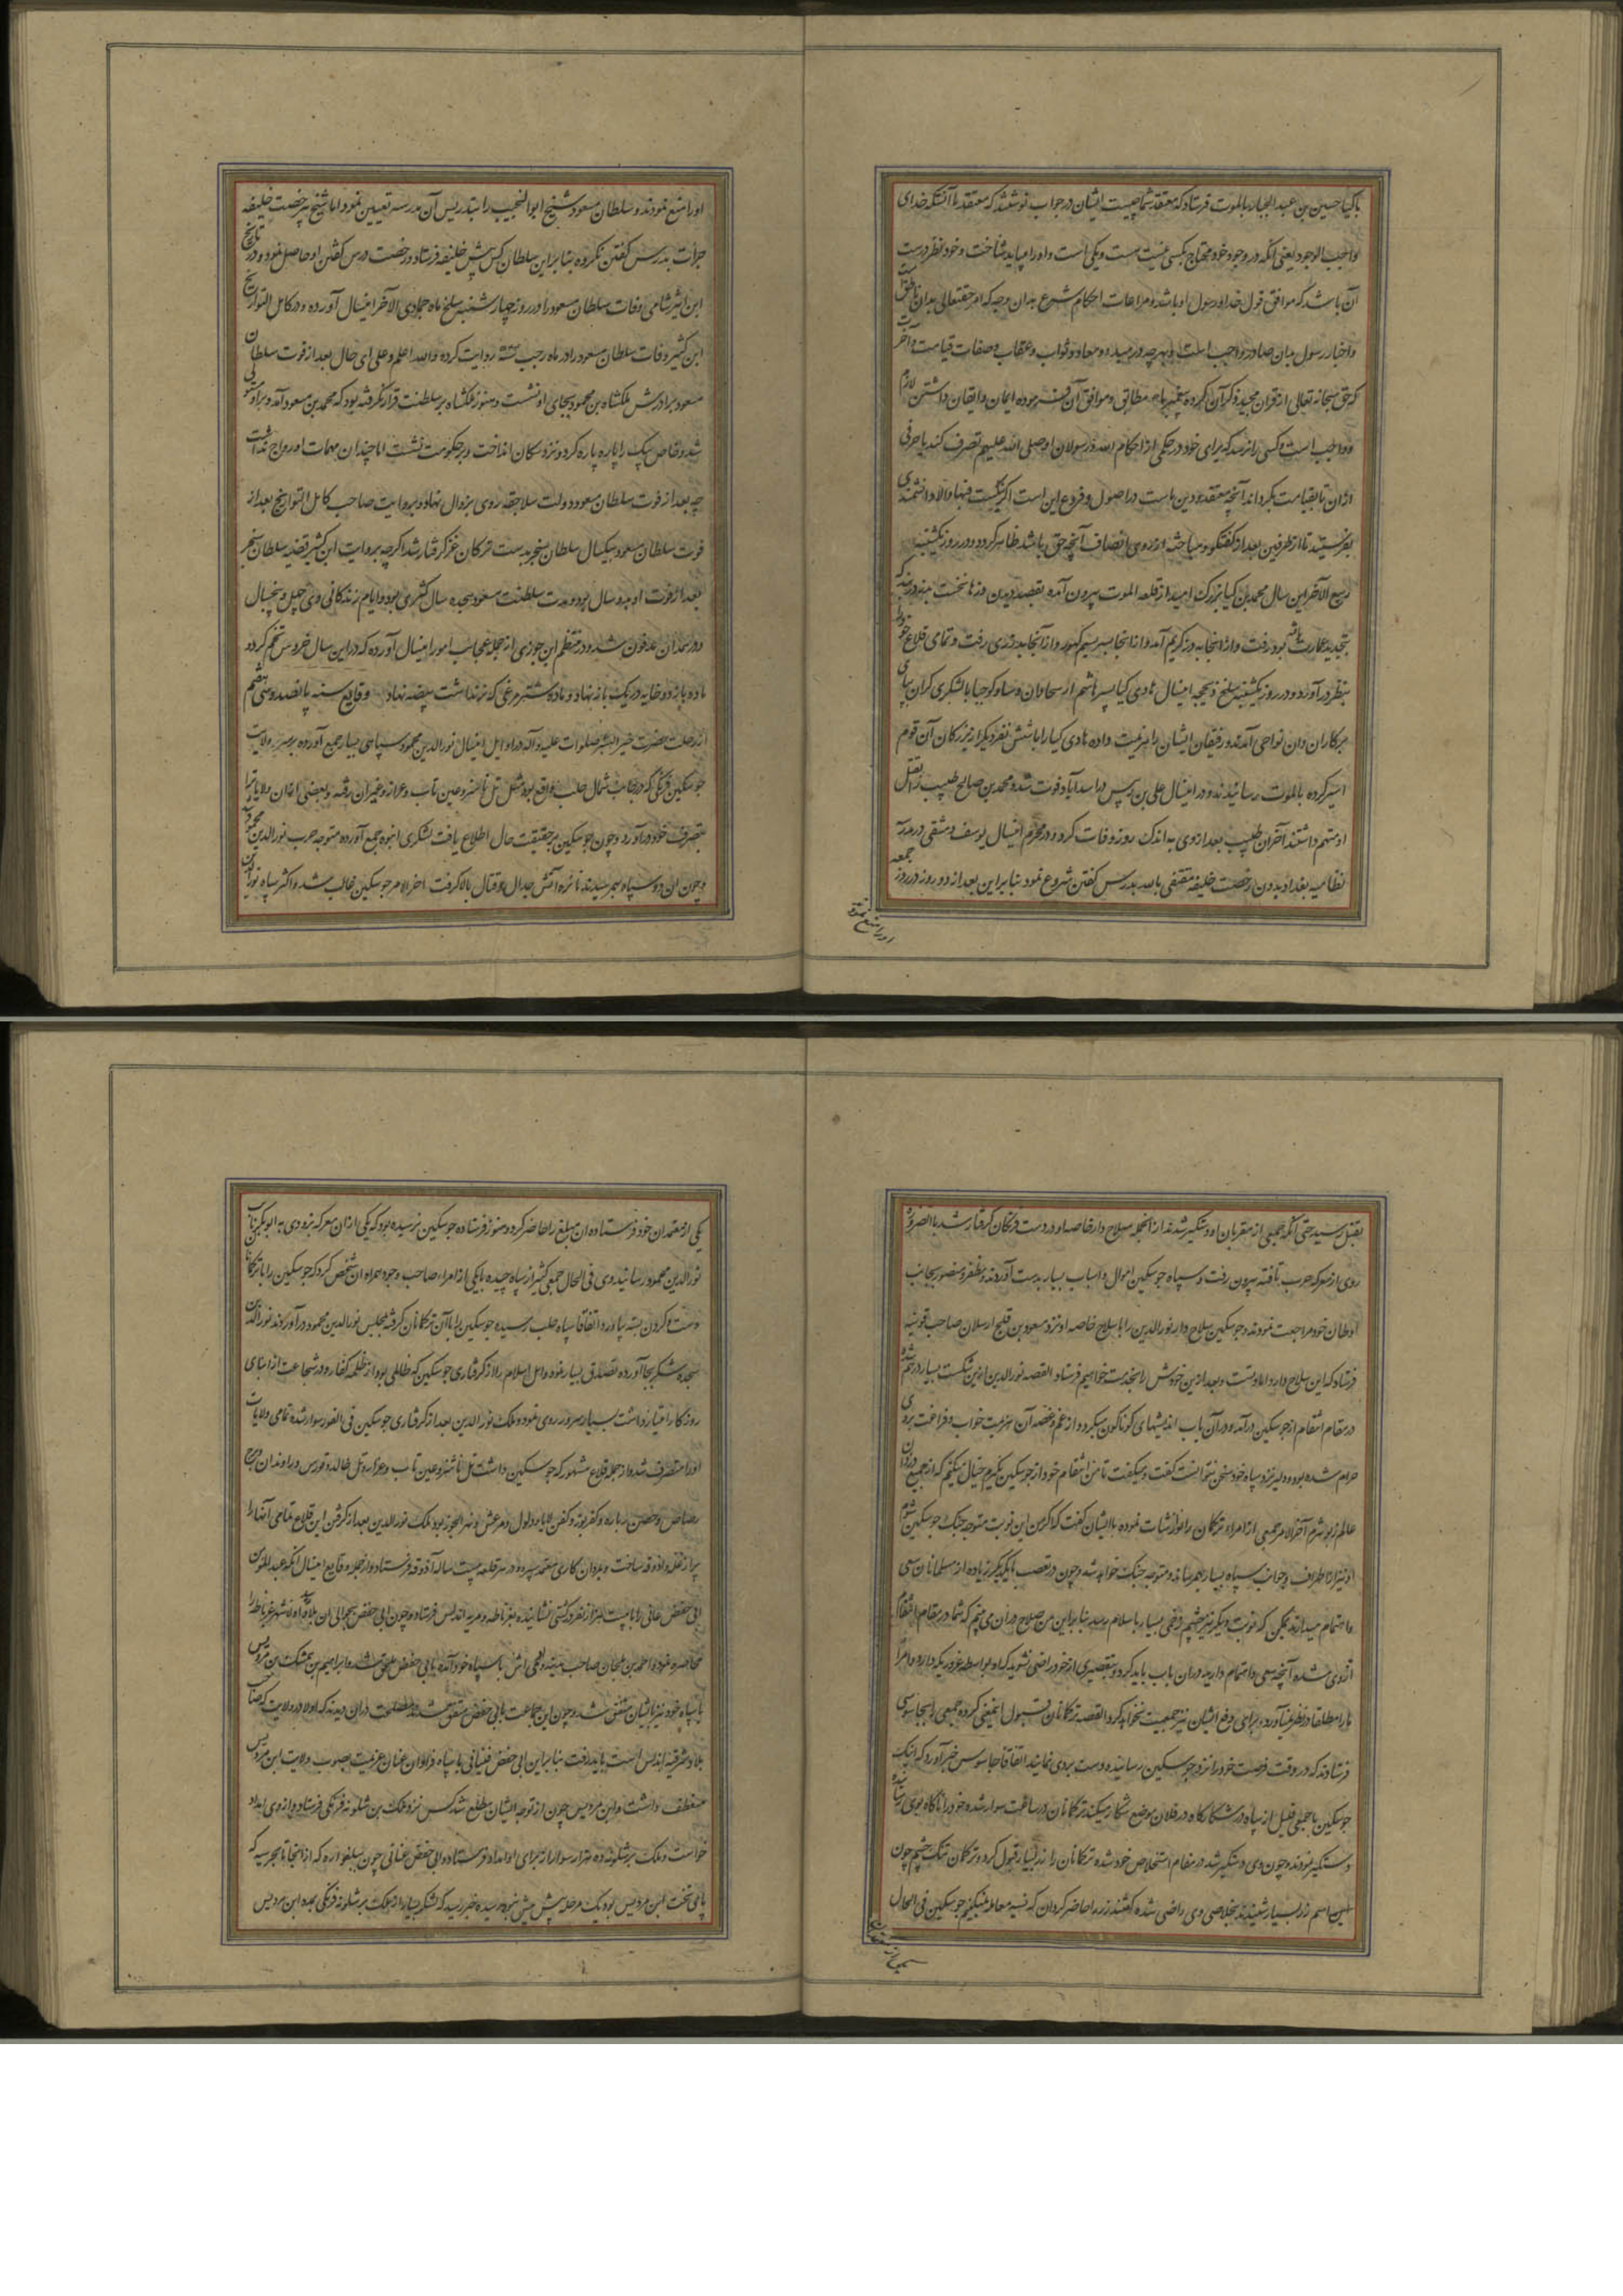 باکیا حسین بن عبد الجبار بالموت فرستاد که معتقد شما چیست ایشان در جواب نوشتند که معتقد ما آنستکه خدای
واجب الوجود یعنی آنکه در وجود خود محتاج بکسی نیست هست ویکی است واو را میباید شناخت وخود نظر درست
آن باشد که موافق قول خدا ورسول او باشد ومراعات احکام شرع بدان وجه که امر حقتعالی بدان ناطق است
واخبار رسول بدان صادر واجب است وبهرچه در مبدء ومعاد وثواب وعقاب وصفات قیامت وآخرت
که حق سبحانه تعالی از قرآن مجید ذکر آن کرده وپیغمبر ما هم مطابق وموافق آن فرموده ایمان وایقان داشتن لازم
وواجب است وکسی را نرسد که برای خود در حکمی از احکام الله ورسولان او صلی الله علیهم تصرف کند یا حرفی
ازان تا بقیامت بگرداند آنچه معتقد ودین ماست در اصول وفروع این است اگر نیک است فبها والا دانشمندی
بفرستید تا از طرفین بعد از گفتگو ومباحثه از روی انصاف آنچه حق باشد ظاهر کردد ودر روز یکشنبه
ربیع الآخر این سال محمد بن کیا بزرک امید از قلعه الموت بیرون آمده بقصد دیدن دزها نخست بدزدربند که
بتجدید عمارت یافته بود رفت واز انجا به دز کریم آمد واز انجا بسر بسیم کهور واز آنجا بدزری رفت وتمامی قلاع خود را
بنظر درآورد ودر روز یکشنبه سلخ ذیحجه امنسال هادی کیا پسر هاشم از سحاوان وساوکوجیا با لشکری کران بپای
مرکاران وان نواحی آمدند ورفیقان ایشان را هزیمت داده هادی کیا را با شش نفر دیگر از بزرکان آن قوم
اسیر کرده بالموت رسانیدند ودر امنسال علی بن پس در اسدآباد فوت شد ومحمد بن صالح طبیب را بقتل
او متهم داشتند آخر ان طبیب بعد از وی به اندک روز وفات کرد ودر محرم امنسال یوسف دمشقی در مدرسه
نظامیه بغداد بدون رخصت خلیفه مقتفی بالله بدرس گفتن شروع نمود بنا براین بعد از دو روز در روز جمعه
اورا منع نمودند
اورا منع نمودند وسلطان مسعود شیخ ابو النجیب را بتدریس آن مدرسه تعیین نمود اما شیخ بی رخصت خلیفه
جرأت بدرس گفتن نکرده بنا براین سلطان کس پیش خلیفه فرستاد ورخصت درس گفتن او حاصل نمود ودر تاریخ
ابن اثیر شامی وفات سلطان مسعود را در روز چهارشنبه سلخ ماه جمادی الآخر امنسال آورده ودر کامل التواریخ
ابن کثیر وفات سلطان مسعود را در ماه رجب روایت کرده والله اعلم وعلی ای حال بعد از فوت سلطان
مسعود برادرش ملکشاه بن محمود بجای او نشست وهنوز ملکشاه بر سلطنت قرار نگرفته بود که محمد بن مسعود آمد وبر او مستولی
شد وخاص بیک را پاره پاره کرد ونزد سکان انداخت وبر حکومت نشست اما چندان مهمات او رواج نداشت
چه بعد از فوت سلطان مسعود دولت سلاجقه روی بزوال نهاد وبروایت صاحب کامل التواریخ بعد از
فوت سلطان مسعود بیکسال سلطان سنجر بدست ترکان غز گرفتار شد اگرچه بروایت ابن کثیر قضیه سلطان سنجر
بعد از فوت او بدو سال بود ومدت سلطنت مسعود هجده سال کثری بود وایام زندکانی وی چهل وپنجسال
ودر همدان مدفون شد ودر منتظم ابن جوزی از جمله عجایب امور امنسال آورده که در این سال خروس تخم کرد و
ماده باز دو خایه در یک باز نهاد وماده شترمرغی که نر نداشت بیضه نهاد وقایع سنه پانصد وسی هشتم
از رحلت حضرت خیر البشر صلوات علیه وآله در اوایل امنسال نور الدین محمود سپاهی بسیار جمع آورده بر سر ولایت
جوسکین فرنکی که در جانب شمال حلب واقع بود مثل تل باشر وعین تاب وعزاز وغیران رفته وبعضی ازان ولایات را
بتصرف خود درآورد وچون جوسکین بر حقیقت حال اطلاع یافت لشکری انبوه جمع آورده متوجه حرب نور الدین محمود شد
وچون ان دو سپاه بهم رسیدند نائره آتش جدال وقتال بالا گرفت اخر الامر جوسکین غالب شد واکثر سپاه نور الدین
بقتل رسید حتی آنکه جمعی از مقربان او دستگیر شدند از انجمله سلاح دار خاصه او در دست فرنکان گرفتار شد بالضروره
روی از معرکه حرب تافته بیرون رفت وسپاه جوسکین اموال واسباب بسیار بدست آوردند ومظفر ومنصور بجانب
اوطان خود مراجعت نمودند وجوسکین سلاح دار نور الدین را با سلاح خاصه او نزد مسعود بن قلج ارسلان صاحب قونیه
فرستاد که این سلاح دار داماد تست وبعد ازین خودش را بخدمت خواهیم فرستاد القصه نور الدین ازین شکست بسیار درهم شده
در مقام انتقام از جوسکین درآمد ودر آن باب اندیشهای کوناکون میکرد واز غم وغصه آن هزیمت خواب وفراغت بر وی
حرام شده بود وبه نزد سپاه خود سخن نتوانست گفت ومیگفت تا من انتقام خود از جوسکین نکیرم خیال میکنم که از جمیع زنان
عالم زبون ترم آخر الامر جمعی از امراء ترکان را نوازشات نموده با ایشان گفت که اگر من این نوبت متوجه جنک جوسکین شوم
او نیز از اطراف وجوانب سپاه بسیار بهم رسانده ومتوجه جنک خواهد شد وچون در تعصب با یکدیگر زیاده از مسلمانان سعی
واهتمام میدارند یمکن که نوبت دیگر نیز چشم زخمی بسیار باسلام رسد بنا براین من صلاح در آن می بینم که شما در مقام انتقام
ازوی شده آنچه سعی واهتمام دارید در ان باب باید کرد وبتقصیری از خود راضی نشوید که او بواسطه غروری که دارد وامرا
ما را مطلقا در نظر نمیآورد وبرای دفع ایشان نیز جمعیت نخواهد کرد القصه ترکمانان قبول اینمعنی کرده جمعی را بجاسوسی
فرستادند که در وقت فرصت خود را نزد جوسکین رسانیده دست بردی نمایند اتفاقا جاسوس خبر آورد که اینک
جوسکین با جمعی قلیل از سپاه در شکارکاه در فلان موضع شکار میکند ترکمانان در ساعت سوار شده خود را ناگاه بوی رسانیده
دستگیر نمودند وچون وی دستگیر شد در مقام استخلاص خود شده ترکمانان را زر بسیار قبول کرد وترکمان تنک چشم چون
این اسم زر بسیار شنیدند بخلاصی وی راضی شده گفتند زر را حاضر گردان که نسیه معامله نمیکنیم جوسکین فی الحال
یکی از معتمدان
یکی از معتمدان خود فرستاده ان مبلغ را حاضر کرد وهنوز فرستاده جوسکین نرسیده بود که یکی ازان معرکه بزودی به ابوبکر نایب
نور الدین محمود رسانید وی فی الحال جمعی کثیر از سپاه چیده با یکی از امراء صاحب وجود همراه ان شخص کرد که جوسکین را با ترکمانان
دست وگردن بسته بیاورد اتفاقا سپاه حلب رسیده جوسکین را با آن ترکمانان گرفته بمجلس نور الدین محمود درآوردند نور الدین
سجده شکر بجا آورده تصدق بسیار نمود واهل اسلام را از گرفتاری جوسکین که ظالمی بود از ظلمه کفار ودر شجاعت از ابنای
روزکار امتیاز داشت بسیار سرور روی نمود وملک نور الدین بعد از گرفتاری جوسکین فی الفور سوار شده تمامی ولایات
اورا متصرف شد واز جمله قلاع مشهور که جوسکین داشت تل باشر وعین تاب وعزاز وتل خالد وقورس وراوندان وبرج
رصاص وحصن رباره وکفرسود وکفرلاثا ودلول ومرعش ونهر الجوز بود ملک نور الدین بعد از گرفتن این قلاع تمامی آنها را
پر از غله واذوقه ساخت وبمردان کاری معتمد سپرده در هر قلعه بیست ساله آذوقه فرستاد واز جمله وقایع امنسال آنکه عبد المؤمن
ابی حفص عانی را با بیست هزار نفر در کشتی نشانیده بغرناطه ومریه اندلس فرستاد وچون ابی حفص بحوالی ان بلاد رسید اولا شهر غرناطه را
محاصره نمود واحمد بن ملحان صاحب مدینه وادی اش با سپاه خود آمده بابی حفص ملحق شد وابراهیم بن همشک بن مردنیس
با سپاه خود نیز بایشان متفق شد وچون این جماعت بابی حفص متفق شدند مصلحت دران دیدند که اولا در ولایت که صاحب
بلاد شرقیه اندلس است باید رفت بنا براین ابی حفص فتیانی با سپاه فراوان عنان عزیمت بصوب ولایت ابن مردنیس
منعطف داشت وابن مردنیس چون از توجه ایشان مطلع شد کس نزد ملک برشلونه فرنکی فرستاد واز وی امداد
خواست وملک برشلونه ده هزار سوار از برای او امداد فرستاد وابی حفص غنانی چون بقلعه واره که از انجا تا بمرسیه که
پای تخت ابن مردنیس بود یک مرحله پیش نبود رسید خبر رسید که لشکر بسیار از ملک برشلونه فرنکی بمدد ابن مردنیس